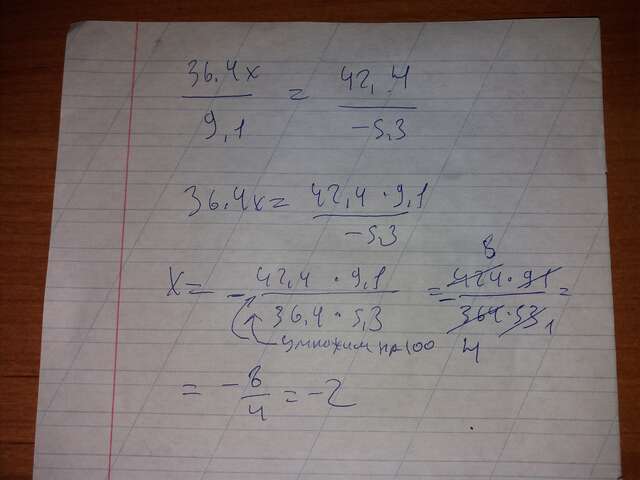 36,4x / 9,1 = 42,4 / -5,3
36,4x = 42,4 · 9,1 / -5,3
x = - 42,4 · 9,1 / 36,4 · 5,3 = - 424 · 91 / 364 · 53 =
8
4 1
умножим на 100
= - 8/4 = -2